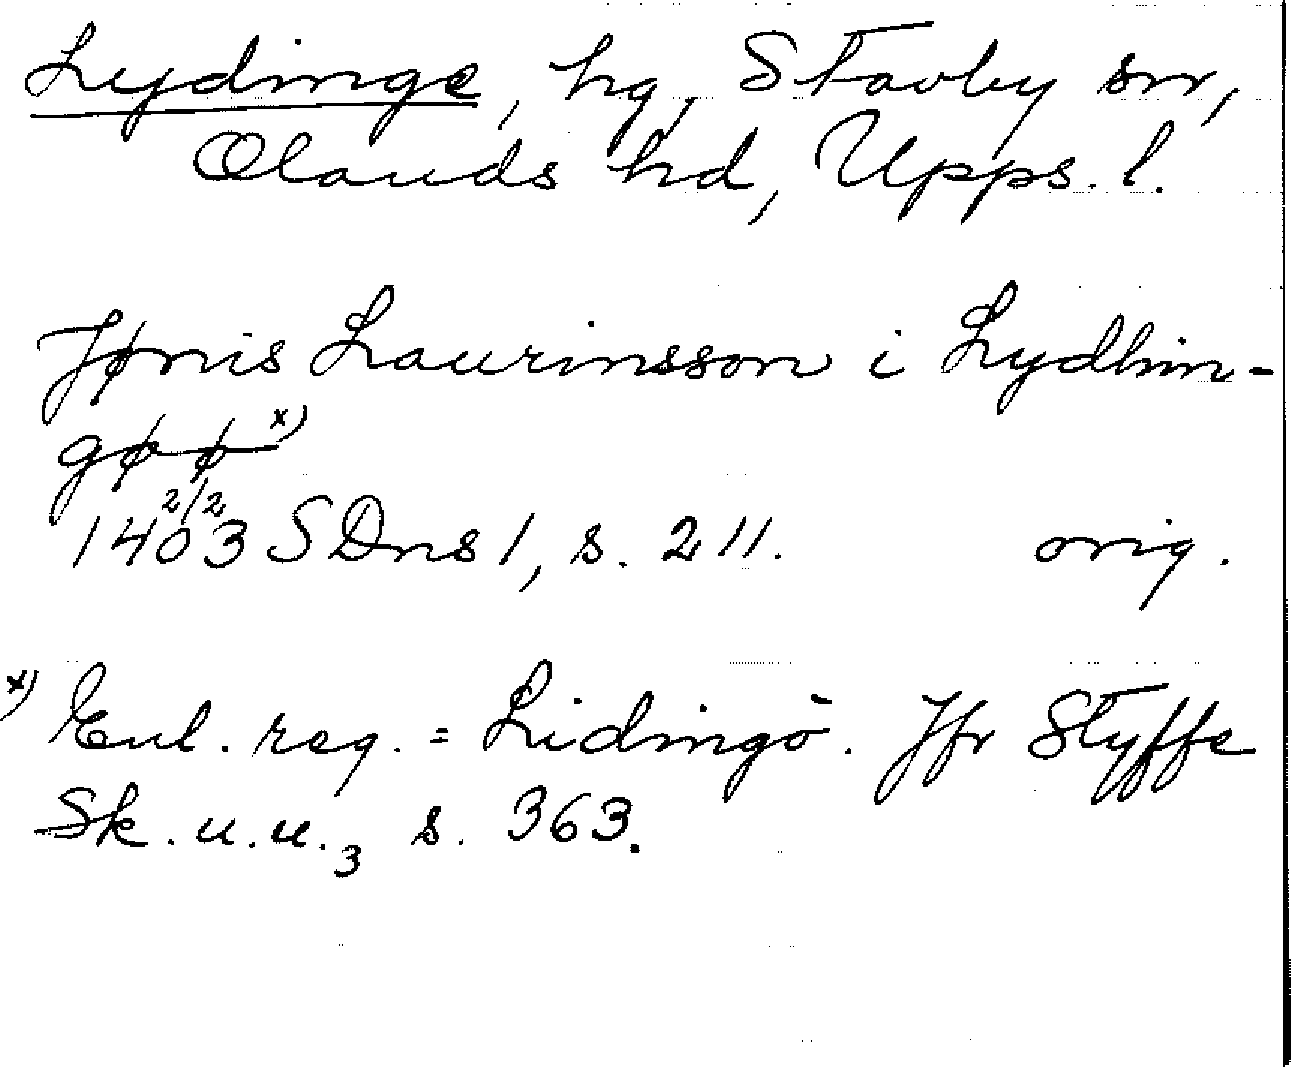 Lydinge, hg, Stavby sn,
Olands hd, Upps. l.
Jønis Laurinsson i Lydhin-
gøø x)
1403 2/2 SDns 1, s. 211. orig.
x) Enl. reg. = Lidingö. Jfr Styffe
Sk. u. u. 3 s. 363.